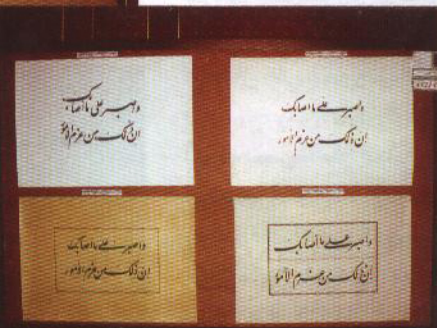 واصبر علی ما اصابک
ان ذلک من عزم الامور
واصبر علی ما اصابک
ان ذلک من عزم الامور
واصبر علی ما اصابک
ان ذلک من عزم الامور
واصبر علی ما اصابک
ان ذلک من عزم الامور